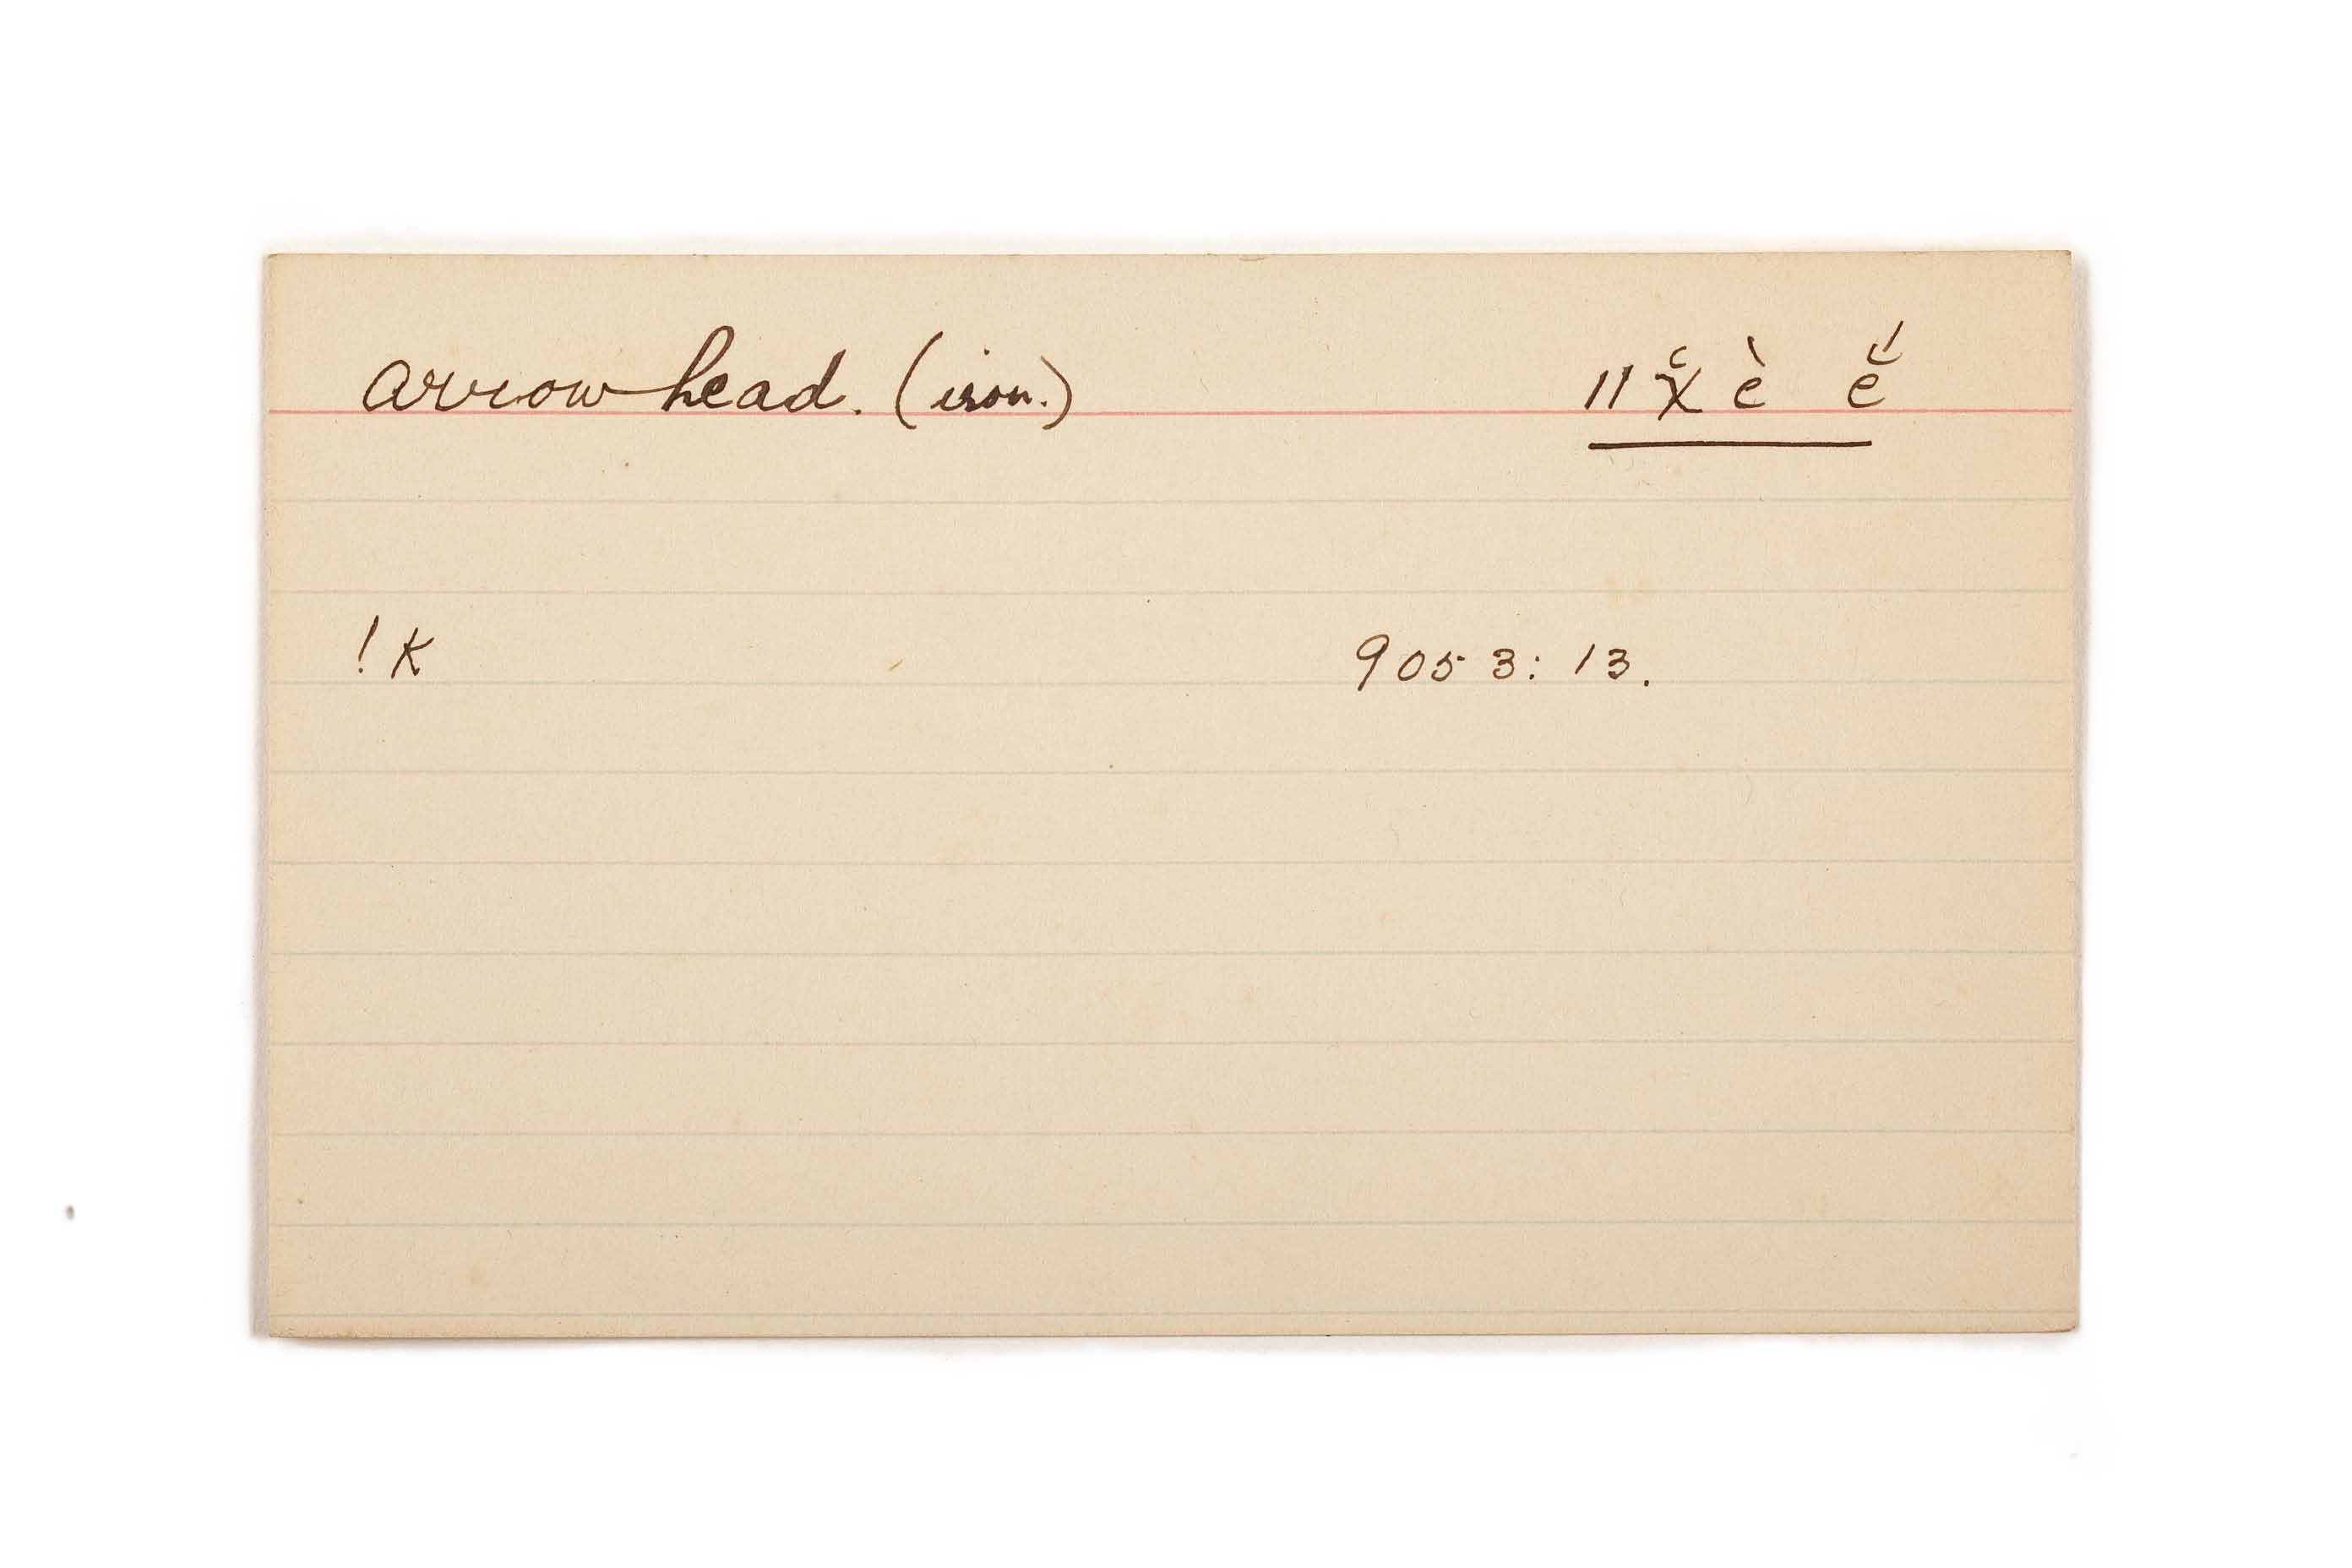 arrow-head. (iron.) ǁχ̆è ĕ́
!k 9053: 13.